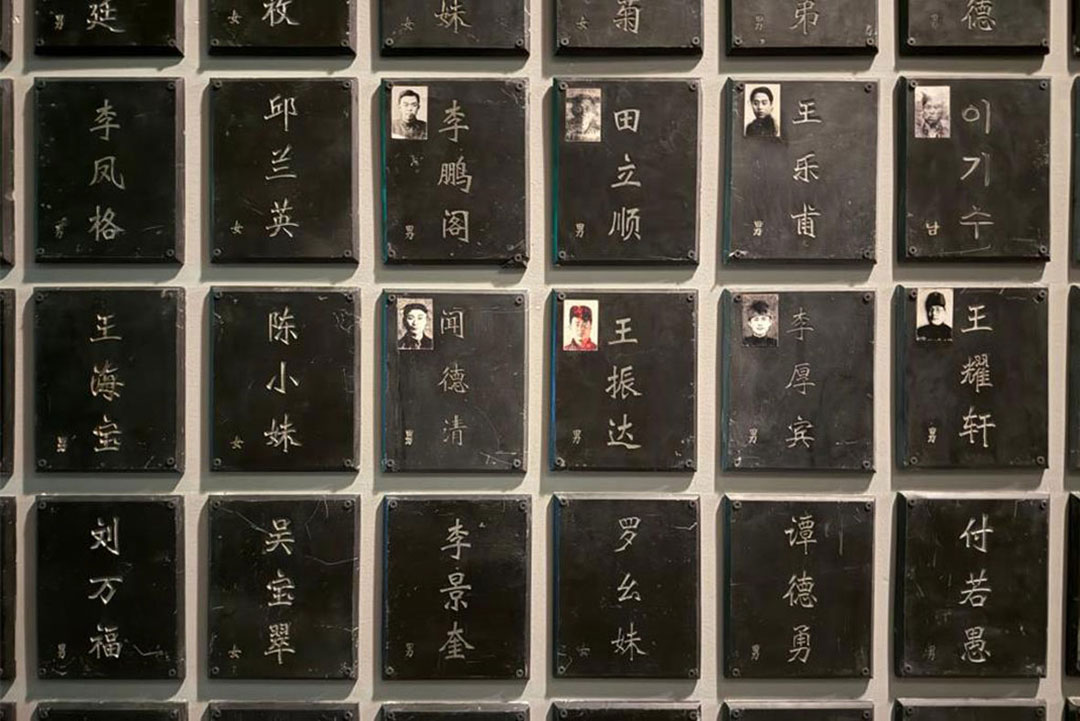 廷
男
女
妹
女
菊
女
弟
男
德
男
李凤格
男
邱兰英
女
李鹏阁
男
田立顺
男
王乐甫
男
이기수
남
王海宝
男
陈小妹
女
闻德清
男
王振达
男
李厚宾
男
王耀轩
男
刘万福
男
吴宝翠
女
李景奎
男
罗幺妹
女
谭德勇
男
付若愚
男